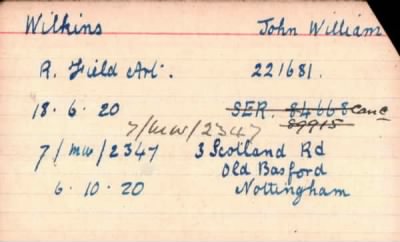 Wilkins John William
R. Field Art. 221681.
18. 6. 20 SER. 84668 Canc
7/MW/2347 89915
7/MW/2347 3 Scotland Rd
Old Basford
6. 10. 20 Nottingham